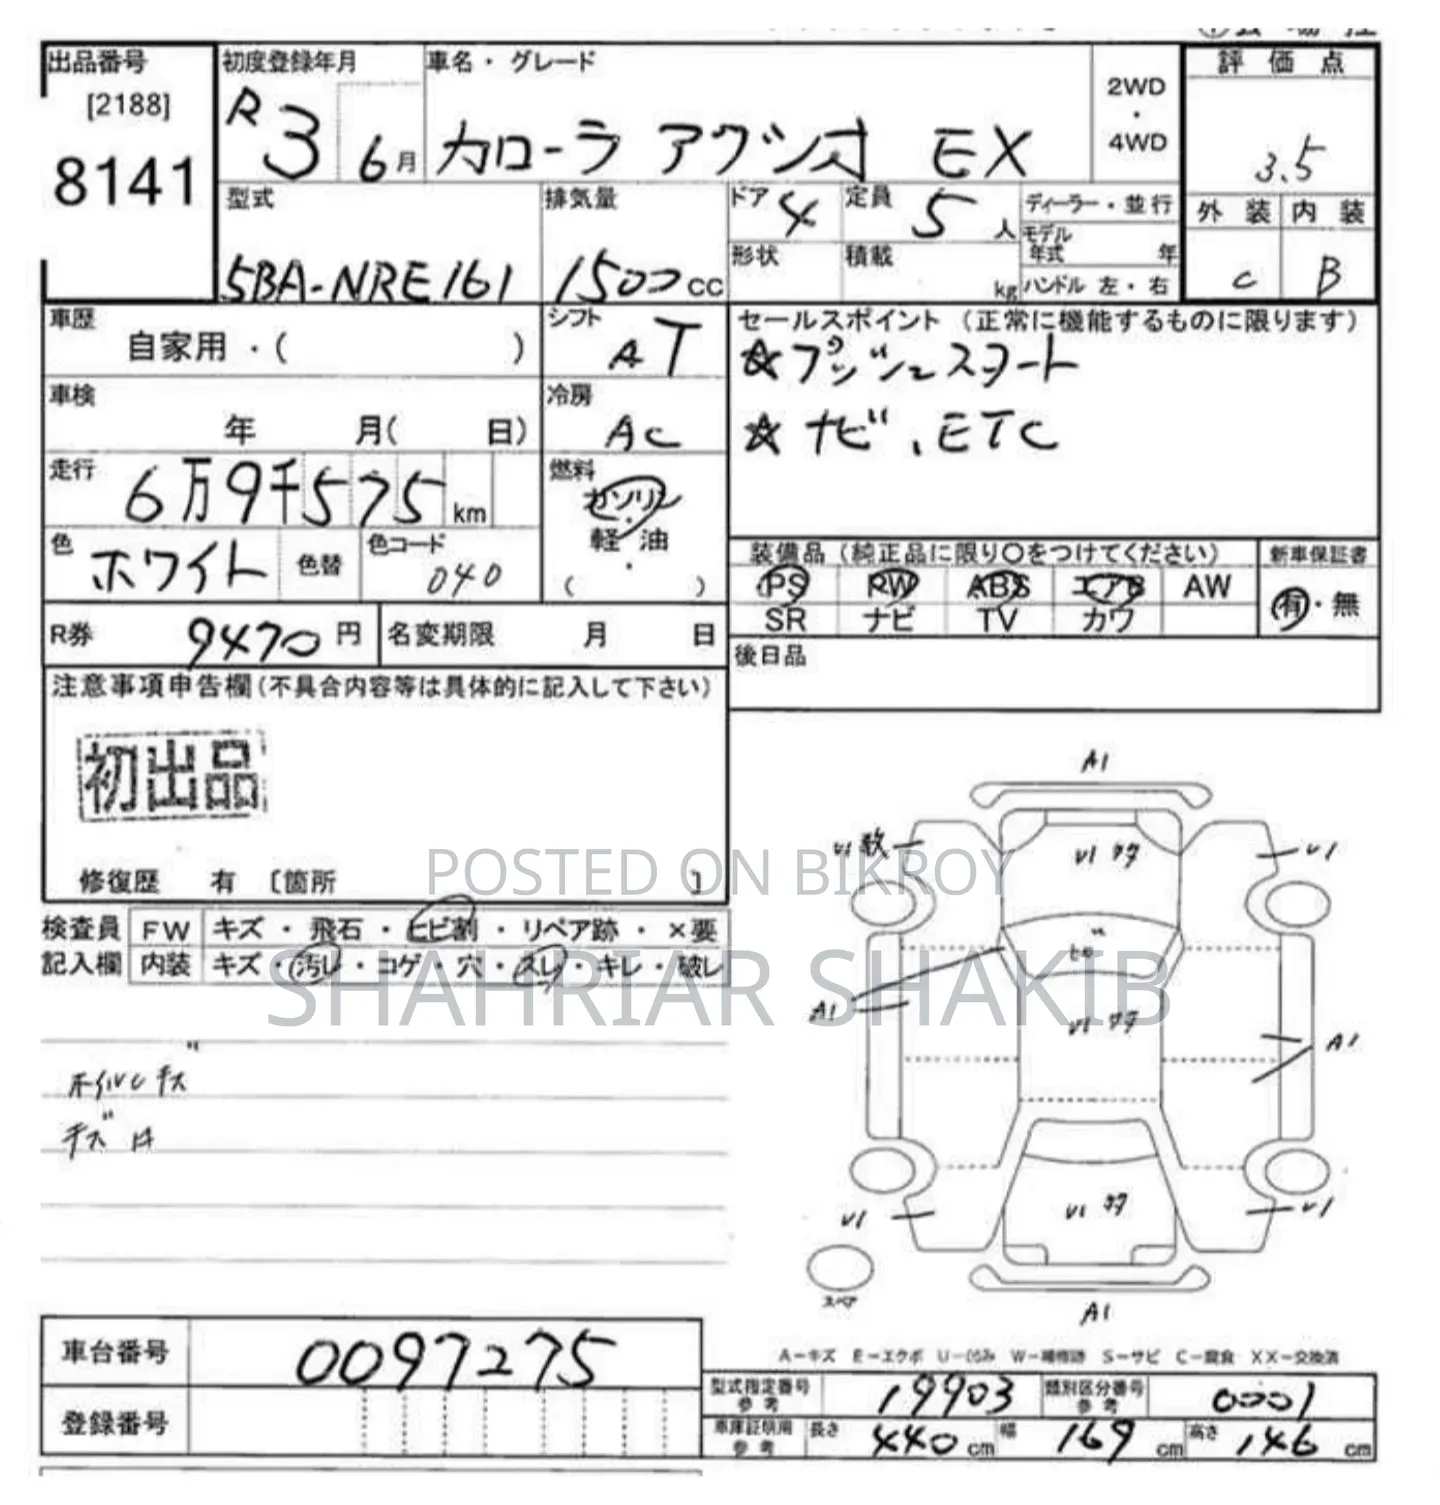 出品番号
[2188]
8141
初度登録年月
R 3 6月
車名・グレード
カローラ アクシオ EX
2WD
・
4WD
評価点
3.5
外装 内装
C B
型式
5BA-NRE161
排気量
1500cc
ドア 4
定員 5人
形状
積載 kg
ディーラー・並行
モデル年式 年
ハンドル 左・右
車歴
自家用・( )
シフト
AT
車検
年 月( 日)
冷房
AC
走行
6万9千575km
燃料
ガソリン
・
軽油
・
( )
色
ホワイト
色替
色コード
040
R券 9470円
名変期限 月 日
セールスポイント(正常に機能するものに限ります)
☆プッシュスタート
☆ナビ、ETC
装備品(純正品に限り○をつけてください)
PS PW ABS エアB AW
SR ナビ TV カワ
新車保証書
有・無
後日品
注意事項申告欄(不具合内容等は具体的に記入して下さい)
初出品
修復歴 有 〔箇所 〕
検査員
記入欄
FW キズ・飛石・ヒビ割・リペア跡・×要
内装 キズ・汚レ・コゲ・穴・スレ・キレ・破レ
POSTED ON BIKROY
SHAHRIAR SHAKIB
A1
U1
U1
U1
A1
U1
A1
U1
U1
U1
スペア
A1
A-キズ E-エクボ U-凹み W-補修跡 S-サビ C-腐食 XX-交換済
車台番号
0097275
登録番号
型式指定番号
参考
19903
類別区分番号
参考
0001
車庫証明用
参考
長さ 440cm
幅 169cm
高さ 146cm